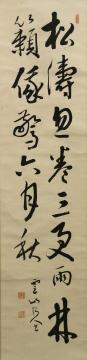 松濤忽卷三更雨林
籟俄驚六月秋
雲山